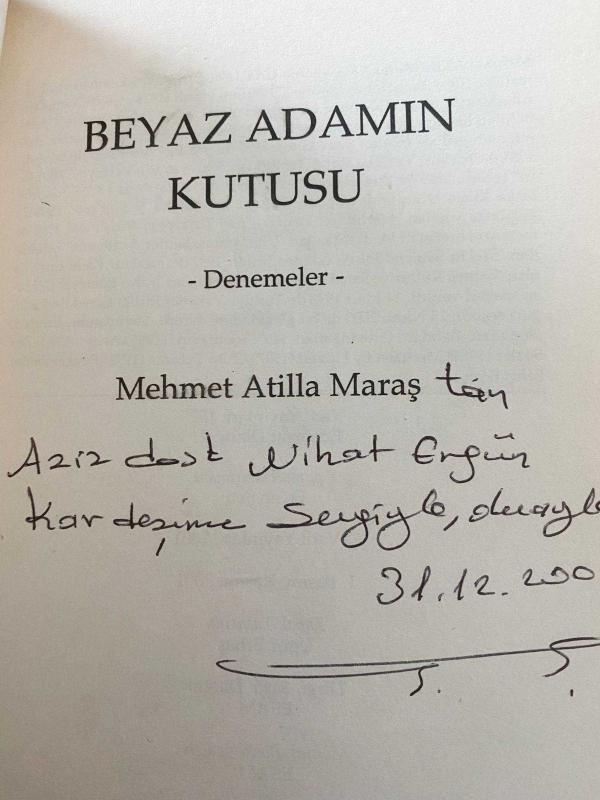 BEYAZ ADAMIN
KUTUSU
- Denemeler -
Mehmet Atilla Maraş tan
Aziz dost Nihat Ergün
Kardeşime Sevgiyle, duayla
31.12.200